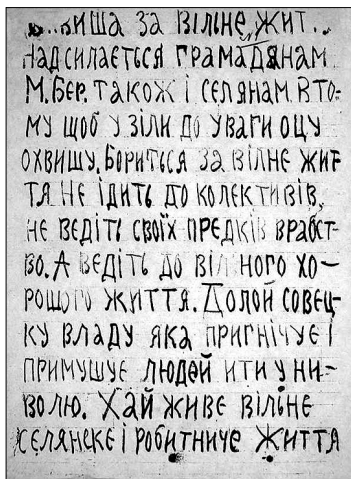 за вільне жит..
надсилається грамадянам
М.Бер. також і селянам. Вто-
му щоб узіли до уваги оцу
охвишу. Бориться за вілне жит-
тя не ідить до колективів,
не ведіть своїх предків врабст-
во. А ведіть до вільного хо-
рошого життя. Долой совец-
ку владу яка пригнічує і
примушує людей ити у ни-
волю. Хай живе вільне
селянске і робитниче життя